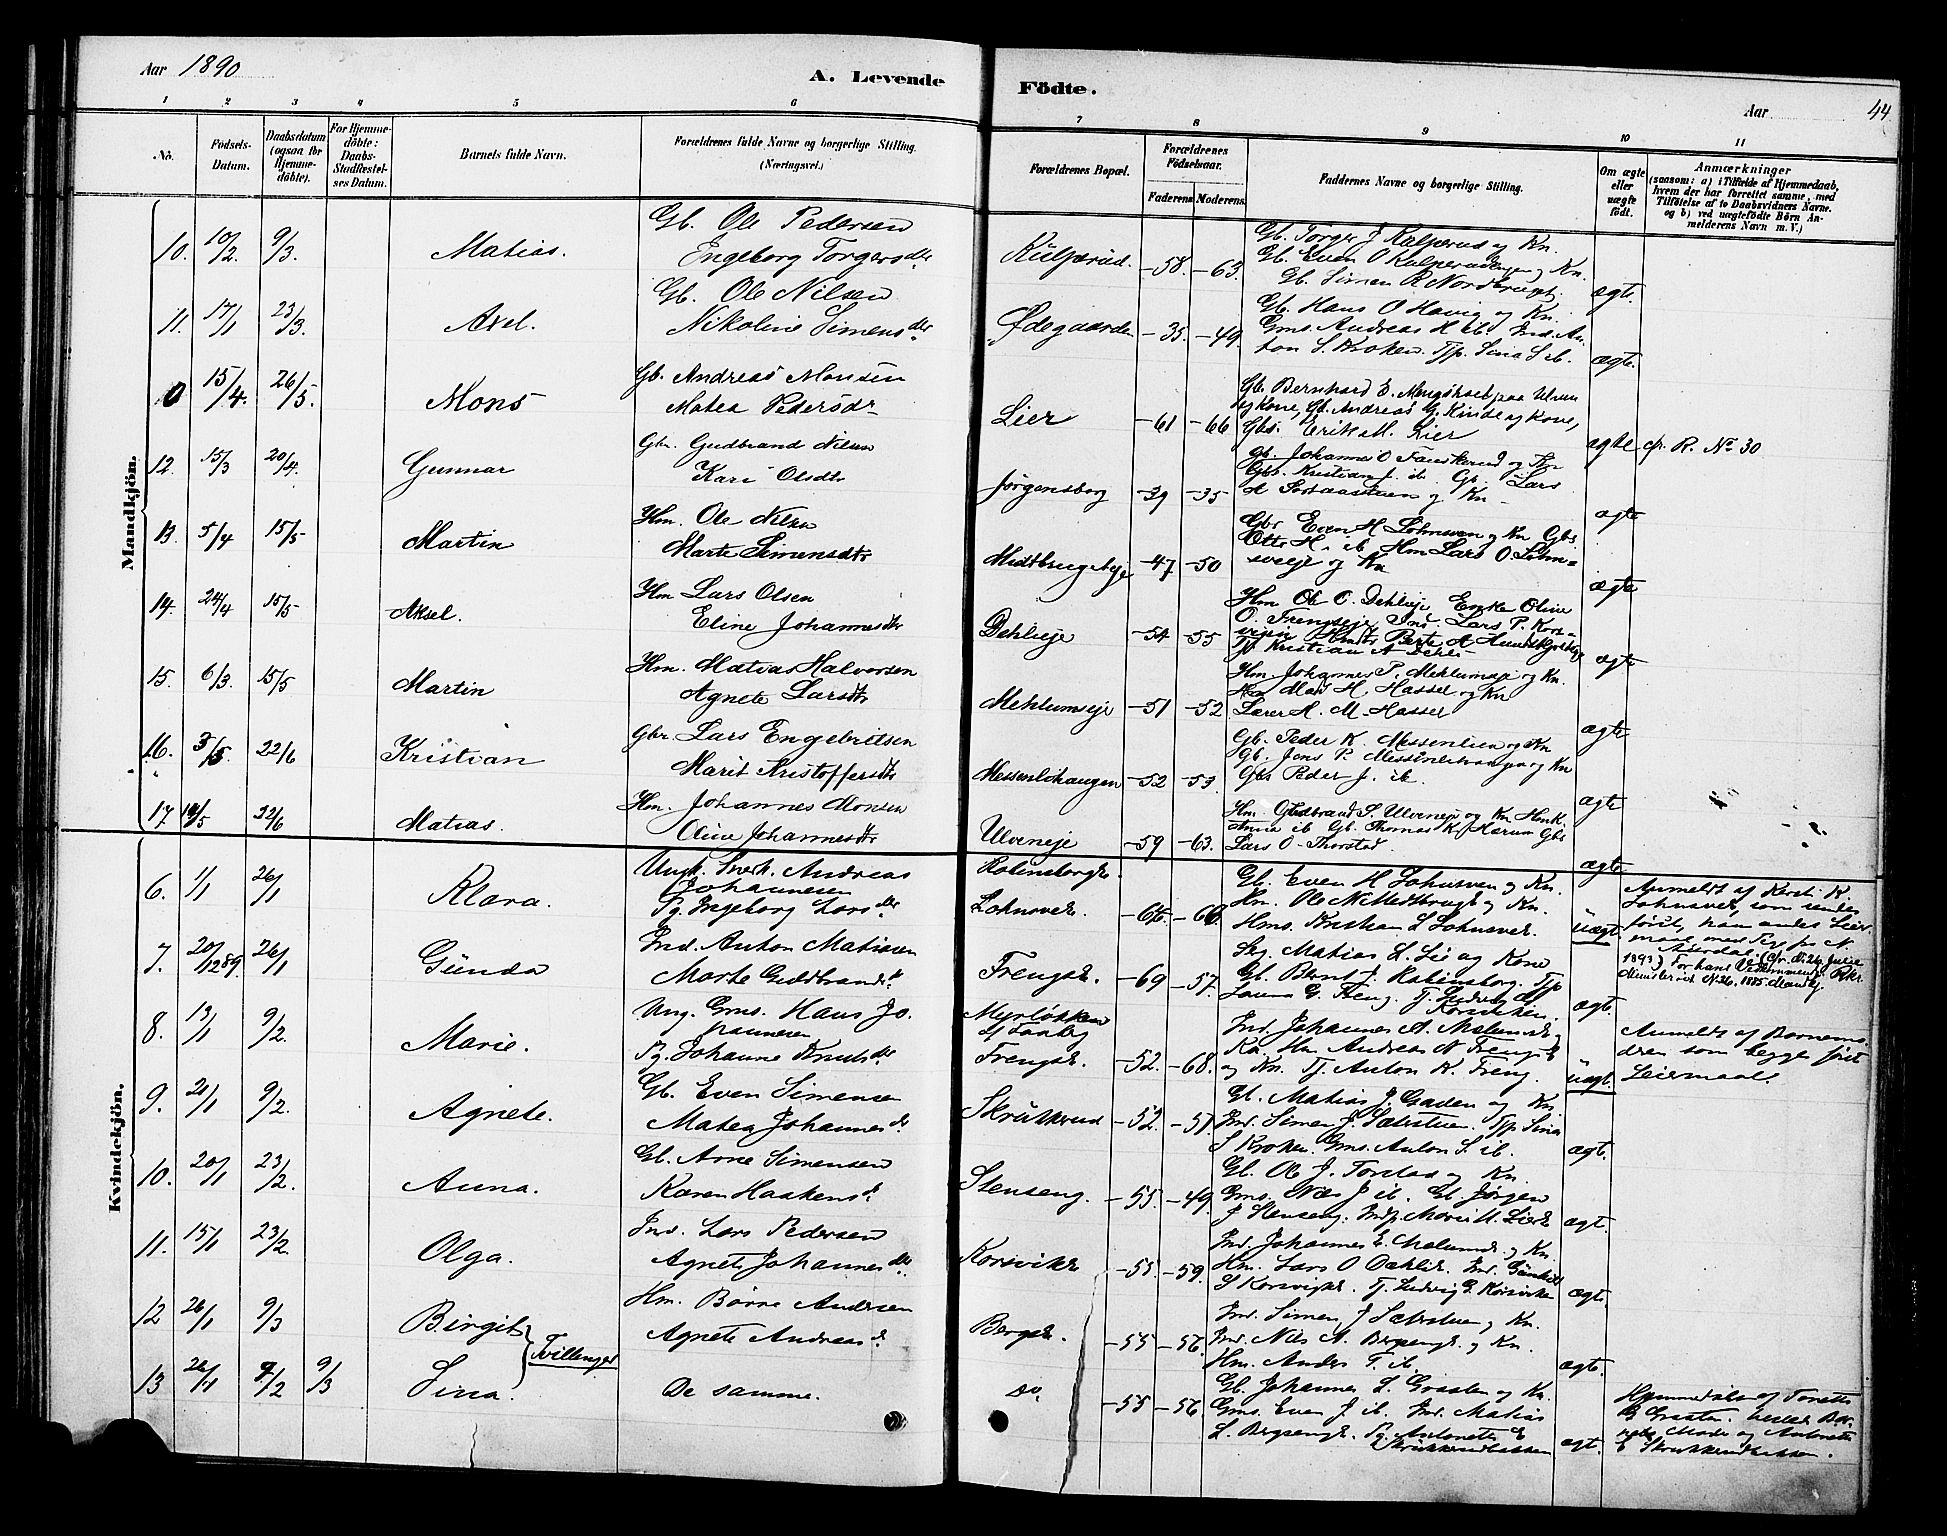 Aar 1890
A. Levende
Födte.
Aar
44
1 2 3 4 5 6 7 8 9 10 11
No.
Födsels-Datum.
Daabsdatum (ogsaa for Hjemme-döbte).
For Hjemme-döbte: Daabs-Stadfæstel-ses Datum.
Barnets fulde Navn.
Forældrenes fulde Navne og borgerlige Stilling.
(Næringsvei.)
Forældrenes Bopæl.
Forældrenes Födselsaar.
Faderens. Moderens.
Faddernes Navne og borgerlige Stilling.
Om ægte eller uægte født.
Anmærkninger
(saasom: a) i Tilfælde af Hjemmedaab,
hvem der har forrettet samme, med
Tilføielse af to Daabsvidners Navne.
og b) ved uægtefødte Börn An-
melderens Navn m. V.)
Mandkjön.
10. 10/2 9/3. Matias.
Gb. Ole Pedersen
Engeborg Torgersdtr
Kulperud. -58. -63.
Gb. Torger J Kulperud og Kn.
ægte.
11. 17/1 23/3. Axel.
Gb. Ole Nilsen
Nikoline Simensdtr
Ødegaarden -35. -49.
Gb. Hans O Havig og Kn.
Gms. Andreas H ib. Ind. An-
ton S. Kroken. Tjp. Sina S ib.
ægte.
0 15/4. 26/5. Mons
Gb. Andreas Monsen
Matea Pedersdr
Lier -61 -66
og Kone, Gb. Andreas G. Kinde og Kone,
Gbs. Erik M. Lier
ægte cfr. R. No 30
12. 15/3 20/4. Gunnar
Gbr. Gudbrand Nilsen
Kari Olsdtr
Jørgensborg -39 -35
Gb. Johannes O Fauskerud og Kn
Gbs. Kristian J. ib. Gb. Lars
ægte
13. 5/4 15/5 Martin
Hm. Ole Nilsen
Marte Simensdtr
Midtbrugeheje -47 -50
Gbr Even H Lohnsven og Kn Gbs
Otto H. ib Hm Lars O Lohn-
sveeje og Kn
ægte
14. 24/4 15/5 Aksel.
Hm Lars Olsen
Eline Johannesdtr
Dehlieje -54 -55
Hm Ole O. Dehlieje Enke Oline
O. Frengseje Ind. Lars P. Kors-
ægte
15. 6/3. 15/5 Martin
Hm. Matias Halvorsen
Agnete Larsdtr
Mehlumseje -51 -52
Hm Johannes P. Mehlumseje og Kn.
Mads H. Hassel og Kn
Lærer H. M. Hassel
ægte
16. 3/5. 22/6 Kristian
Gbr. Lars Engebritsen
Marit Kristoffersdtr
Messenlihaugen -52 -53.
Gb. Peder K. Messenlien og Kn
Gb. Jens P. Messenlihaugen og Kn
Gbs Peder J. ib
ægte
17 14/5 22/6 Matias.
Hm. Johannes Monsen
Oline Johannesdtr
Ulveneje -59 -63.
Hm. Gudbrand S. Ulveneje og Kn
Anne ib Gb. Thomas K. Harum Gbs
Lars O. Thorstad.
ægte
Kvindekjön.
6. 1/1 26/1 Klara.
Ungk. Snek. Andreas
Johannesen
Pg. Ingeborg Larsdtr
Rabensborgk.
Lohnsvek. -66. -66.
Gb. Even H Lohnsven og Kn.
Hm. Ole N Midtbrugk og Kn.
Hms. Kristian L Lohnsvek.
uægt
Anmeldt af Kersti K.
Lohnsvek, som
først, han andet Leier-
maal med Pig fra N.
7. 20/12 89. 26/1 Gunda
Ind. Anton Matiesen
Marte Guldbrandsd.
Frengsk. -69 -57.
Skj. Matias L. Lie og Kone
Gb. Bernt J. Rabensborg. Tjp
ægt.
8. 13/1 9/2. Marie.
Ung. Gms. Hans Jo-
hannesen
Pg. Johanne Knutsdtr
Myrløkken
af Faaberg
Frengsk. -52. -68.
Ind. Johannes A. Melumsk
Kn. Hm Andreas N Frengsk
og Kn. Tj. Anton K. Freng.
uægt.
Anmeldt af Barnemo-
dren som begges først
Leiermaal.
9. 21/1 9/2. Agnete.
Gb. Even Simensen
Matea Johannesd.
Skrukkerud -52. -51.
Gb. Matias J. Gaden og Kn
Ind. Simen J. Sæbstuen. Tjp Sina
S Kroken. Gms. Anton S. ib.
ægt.
10. 20/1 23/2. Anna.
Gb. Arne Simensen
Karen Haakensd.
Stenseng. -55. -49.
Gb. Ole J. Torstad og Kn.
Gms. Nils J ib. Gb. Jørgen
J Stenseng. Indp. Marie M. Lierk
ægt.
11. 15/1 23/2. Olga.
Ind. Lars Pedersen
Agnete Johannesdtr.
Korsvikk -55. -59.
Ind. Johannes E. Melumsk og Kn.
Hm. Lars O Dehlik. Ind. Gunhild
S Korsvigk. Tj. Ludvig G. Korsviken
ægt.
12 26/1 9/3 Birgit
Hm. Børre Andersen
Agnete Andreasd
Bergsk. -55 -56.
Ind. Simen J Sæbstuen og Kn.
Ind. Nils A. Bergsengk. og Kn.
Hm. Anders T. ib.
ægt.
Tvillinger
13 26/1 9/2 9/3 Sina.
De samme.
Do. -55 -56
Gb. Johannes L. Graaten og Kn.
Gms. Even J ib. Ind. Matias
L. Bergsengk. Pg. Antonette E
Skrukkerudbakken
ægt.
Hjemmedøbt af Tonette
Graaten.
Moder og Antonette
E Skrukkerudbakken.